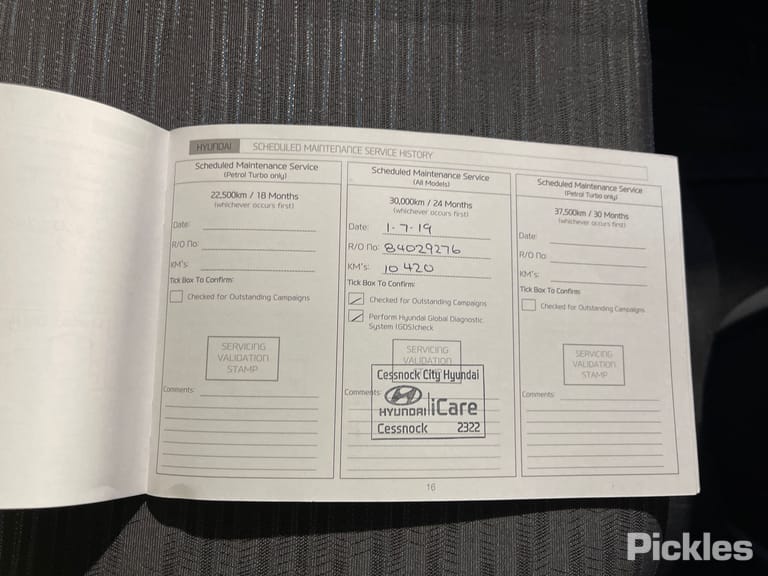 HYUNDAI SCHEDULED MAINTENANCE SERVICE HISTORY
Scheduled Maintenance Service
(Petrol Turbo only)
22,500km / 18 Months
(whichever occurs first)
Date:
R/O No:
KM's:
Tick Box To Confirm:
Checked for Outstanding Campaigns
SERVICING
VALIDATION
STAMP
Comments:
Scheduled Maintenance Service
(All Models)
30,000km / 24 Months
(whichever occurs first)
Date: 1-7-19
R/O No: 84029276
KM's: 10 420
Tick Box To Confirm:
Checked for Outstanding Campaigns
Perform Hyundai Global Diagnostic
System (GDS)check
SERVICING
VALIDATION
Cessnock City Hyundai
Comments:
HYUNDAI iCare
Cessnock 2322
Scheduled Maintenance Service
(Petrol Turbo only)
37,500km / 30 Months
(whichever occurs first)
Date:
R/O No:
KM's:
Tick Box To Confirm:
Checked for Outstanding Campaigns
SERVICING
VALIDATION
STAMP
Comments:
16
Pickles